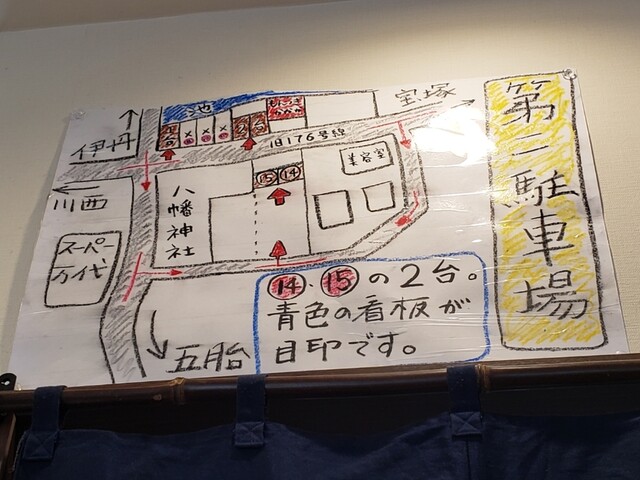 第二駐車場
宝塚
池
伊丹
旧176号線
川西
美容室
⑮ ⑭
八幡神社
スーパー
万代
⑭・⑮の2台。
青色の看板が
目印です。
五胎